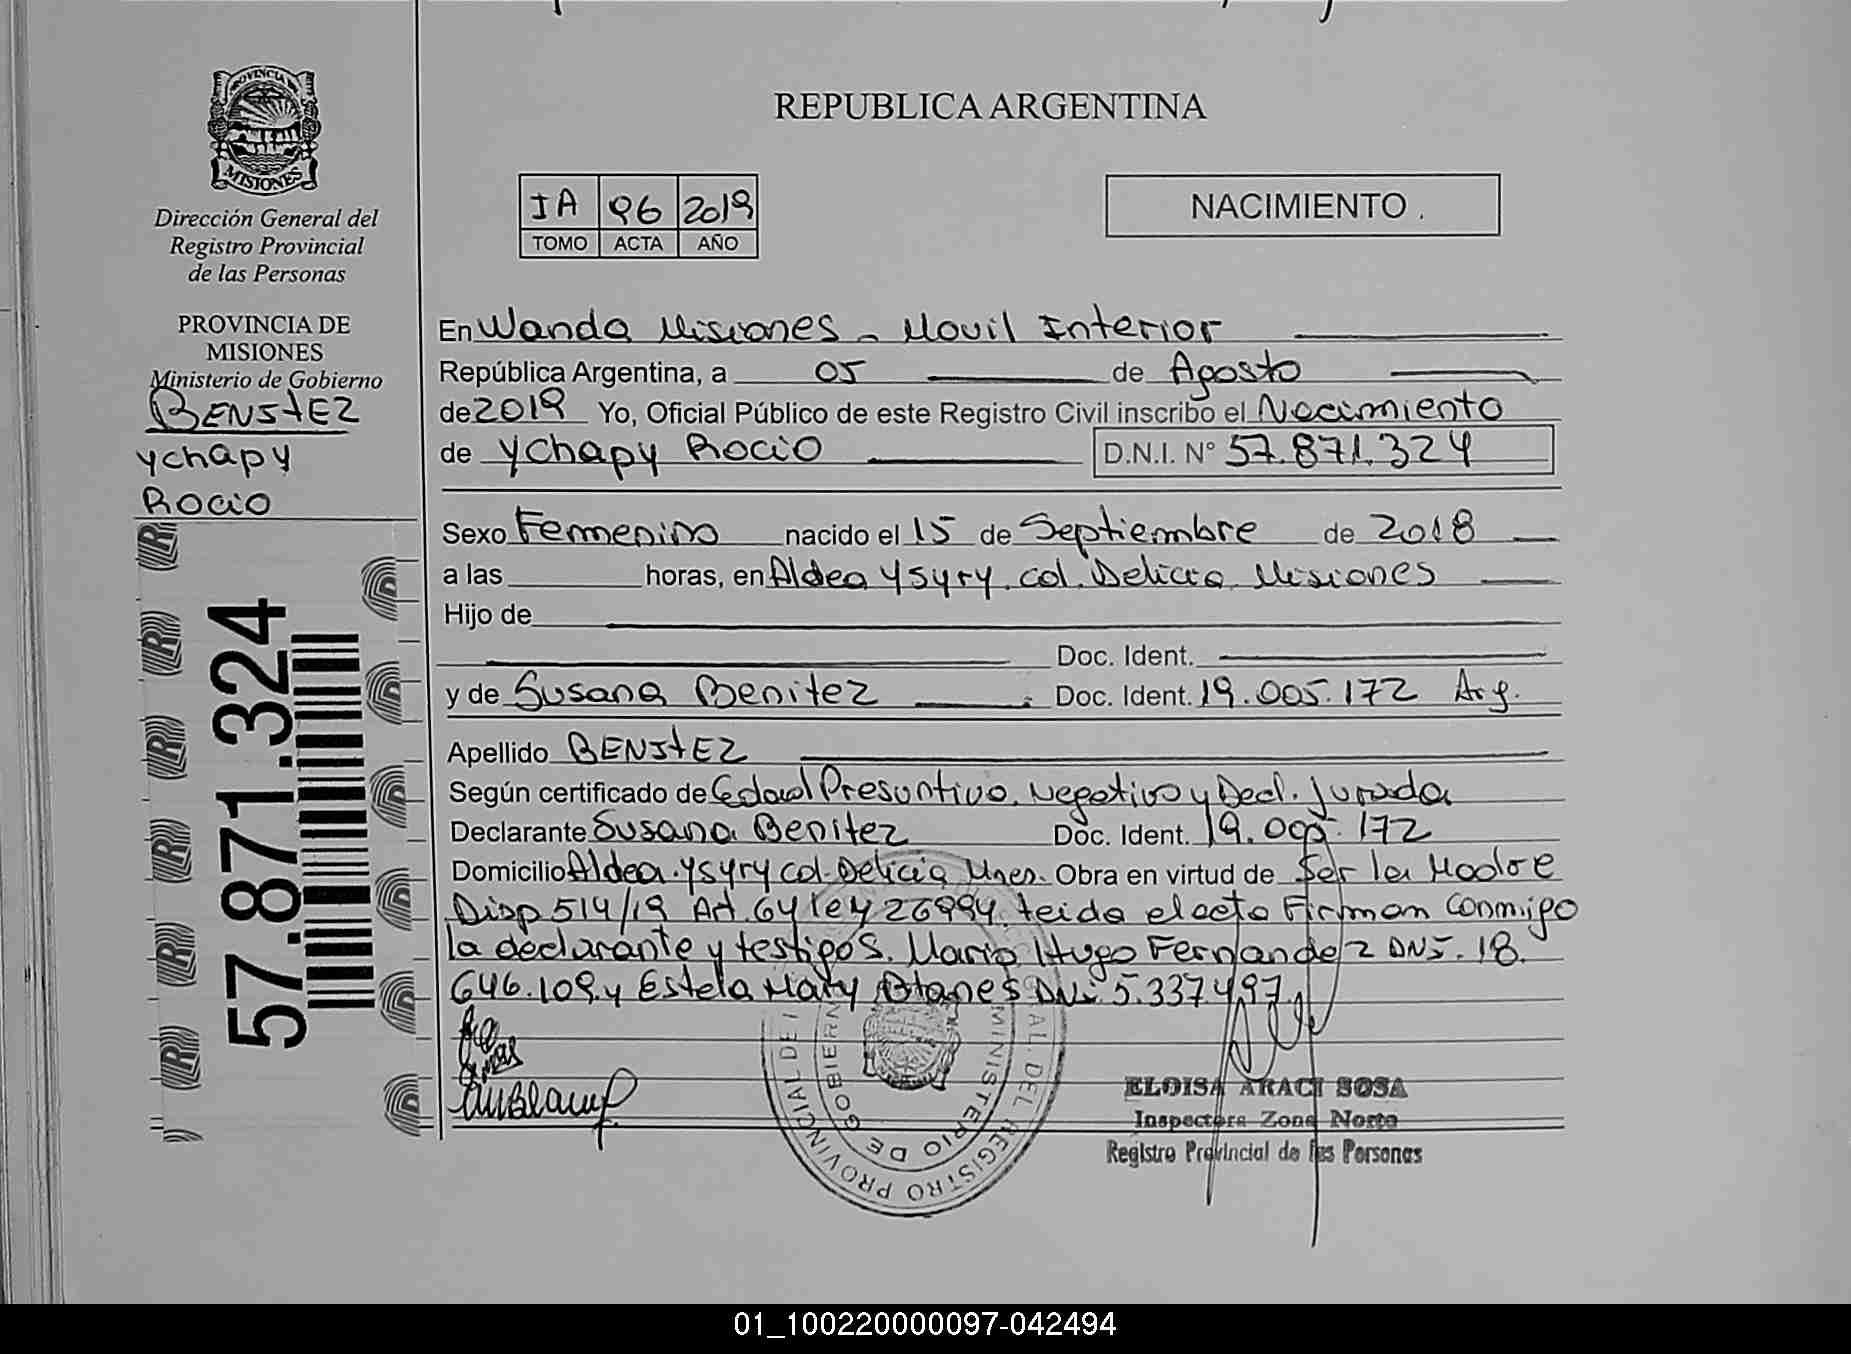 PROVINCIA DE
MISIONES
Dirección General del
Registro Provincial
de las Personas
PROVINCIA DE
MISIONES
Ministerio de Gobierno
BENITEZ
Ychapy
Rocio
57.871.324
REPUBLICA ARGENTINA
IA 96 2019
TOMO ACTA AÑO
NACIMIENTO .
En Wanda Misiones - Movil Interior
República Argentina, a 05 de Agosto
de 2019 Yo, Oficial Público de este Registro Civil inscribo el Nacimiento
de Ychapy Rocio D.N.I. N° 57.871.324
Sexo Femenino nacido el 15 de Septiembre de 2018
a las horas, en Aldea Ysyry. Col. Delicia. Misiones
Hijo de
Doc. Ident.
y de Susana Benitez Doc. Ident. 19.005.172 Arg.
Apellido BENITEZ
Según certificado de Edad Presuntiva, Negativo y Decl. Jurada
Declarante Susana Benitez Doc. Ident. 19.005.172
Domicilio Aldea. Ysyry col. Delicia Mnes. Obra en virtud de Ser la Madre
Disp 514/19 Art. 64 ley 26994. leida el acta Firman conmigo
la declarante y testigos. Mario Hugo Fernandez DNI. 18.
646.109. y Estela Mary Atanes DNI 5.337.497.
REGISTRO PROVINCIAL DE
MINISTERIO DE GOBIERN
ELOISA ARACI SOSA
Inspectora Zona Norte
Registro Provincial de las Personas
01_100220000097-042494